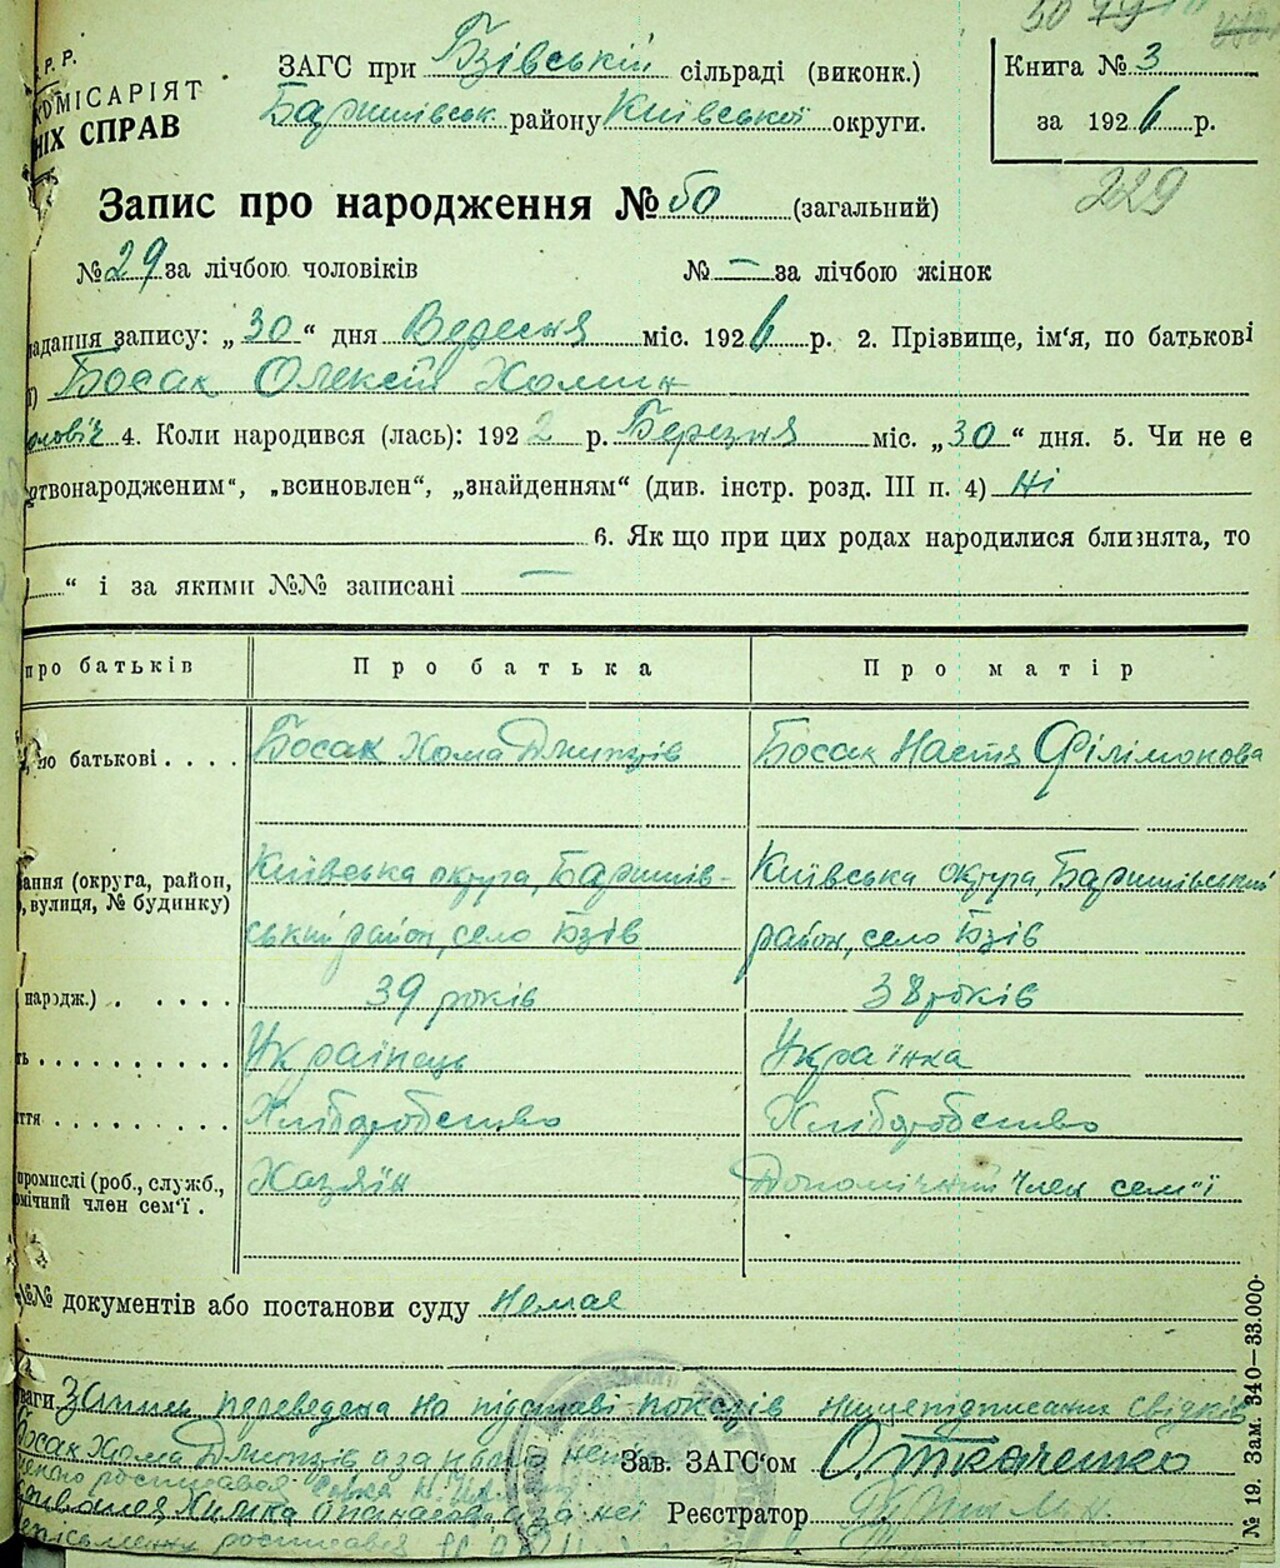 Р. Р.
КОМІСАРІЯТ
НІХ СПРАВ
ЗАГС при Бзівській сільраді (виконк.)
Баришівськ. району Київської округи.
Книга № 3
за 1926 р.
229
Запис про народження № 60 (загальний)
№ 29 за лічбою чоловіків № — за лічбою жінок
ладання запису: „30“ дня Вересня міс. 1926 р. 2. Прізвище, ім‘я, по батькові
Босак Олексій Хомин
4. Коли народився (лась): 1922 р. Березня міс. „30“ дня. 5. Чи не є
ртвонародженим“, „всиновлен“, „знайденням“ (див. інстр. розд. III п. 4) Ні
6. Як що при цих родах народилися близнята, то
“ і за якими №№ записані —
про батьків Про батька Про матір
по батькові . . . . Босак Хома Дмитрів Босак Настя Філімонова
ання (округа, район, Київська округа, Баришів- Київська округа, Баришівський
, вулиця, № будинку) ський район, село Бзів район, село Бзів
народж.) . . . . . 39 років 38 років
ть . . . . . . . . . . Українець Українка
ття . . . . . . . . . Хліборобство Хліборобство
промислі (роб., служб., Хазяїн Допомічний член сем"ї
омічний член сем‘ї .
№№ документів або постанови суду немає
ваги Запись переведена на підставі показів нищепідписаних свідків
Босак Хома Дмитрів а за нього
Зав. ЗАГС‘ом О. Ткаченко
росписався
Реєстратор
Опанасова, а за неї
росписався
№ 19. Зам. 340—33.000.